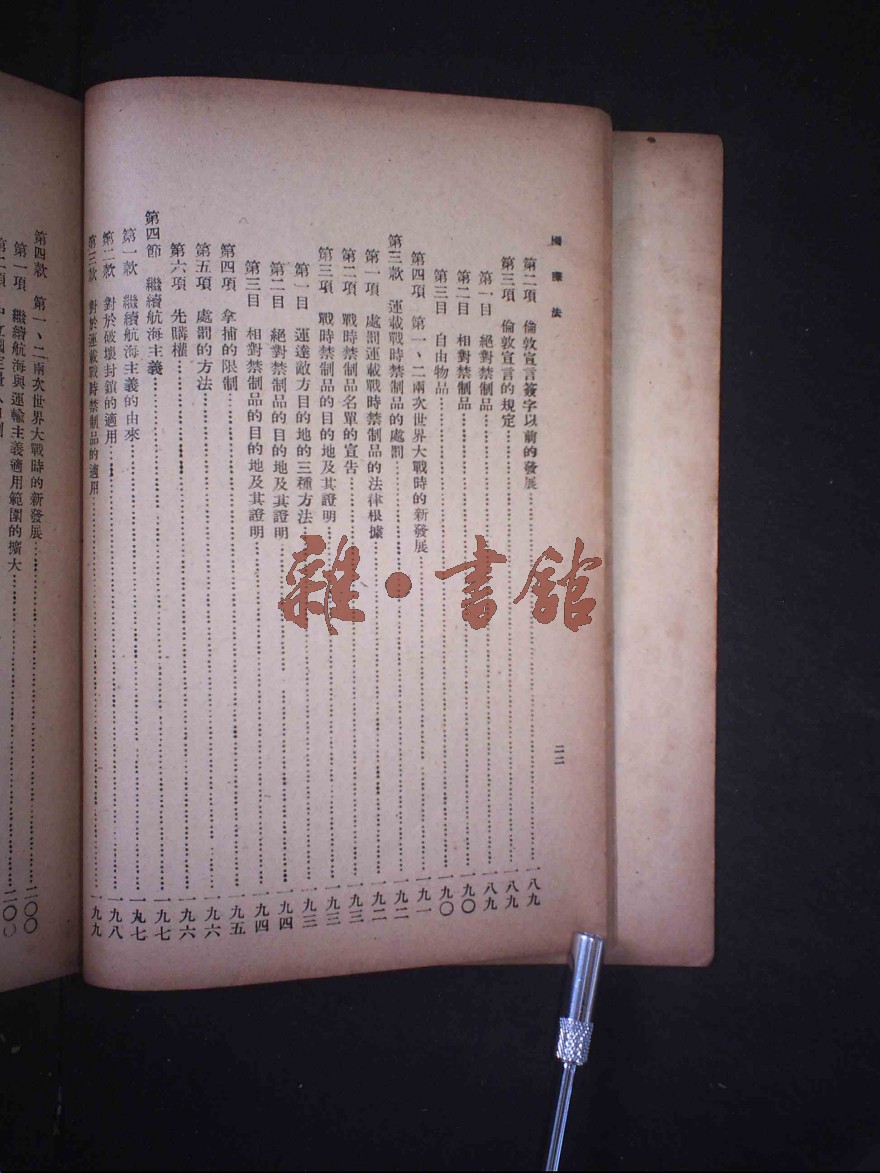 國際法
二二
第二項 倫敦宣言簽字以前的發展……一八九
第三項 倫敦宣言的規定……一八九
第一目 絕對禁制品……一八九
第二目 相對禁制品……一九〇
第三目 自由物品……一九〇
第四項 第一、二兩次世界大戰時的新發展……一九一
第三款 運載戰時禁制品的處罰……一九二
第一項 處罰運載戰時禁制品的法律根據……一九二
第二項 戰時禁制品名單的宣告……一九三
第三項 戰時禁制品的目的地及其證明……一九三
第一目 運達敵方目的地的三種方法……一九三
第二目 絕對禁制品的目的地及其證明……一九四
第三目 相對禁制品的目的地及其證明……一九四
第四項 拿捕的限制……一九五
第五項 處罰的方法……一九六
第六項 先購權……一九六
第四節 繼續航海主義……一九七
第一款 繼續航海主義的由來……一九七
第二款 對於破壞封鎖的適用……一九八
第三款 對於運載戰時禁制品的適用……一九九
第四款 第一、二兩次世界大戰時的新發展……二〇〇
第一項 繼續航海與運輸主義適用範圍的擴大……二〇〇
第二項
雜·書館